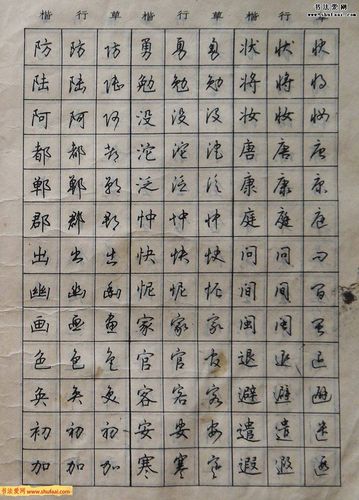 书法爱网
www.shufaai.com
楷 行 草 楷 行 草 楷 行 草
防 防 防 勇 勇 勇 状 状 状
陆 陆 陆 勉 勉 勉 将 将 将
阿 阿 阿 没 没 没 妆 妆 妆
都 都 都 沱 沱 沱 唐 唐 唐
郸 郸 郸 泛 泛 泛 康 康 康
郡 郡 郡 忡 忡 忡 庭 庭 庭
出 出 出 快 快 快 问 问 问
幽 幽 幽 怩 怩 怩 间 间 间
画 画 画 家 家 家 闽 闽 闽
色 色 色 官 官 官 退 退 退
奂 奂 奂 客 客 客 避 避 避
初 初 初 安 安 安 遣 遣 遣
加 加 加 寒 寒 寒 遐 遐 遐
书法爱网
www.shufaai.com